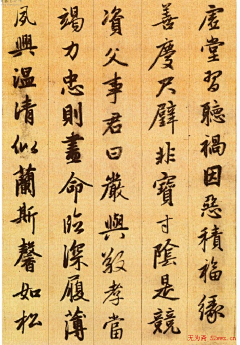 虛堂習聽禍因惡積福緣
善慶尺璧非寶寸陰是競
資父事君曰嚴與敬孝當
竭力忠則盡命臨深履薄
夙興溫清似蘭斯馨如松